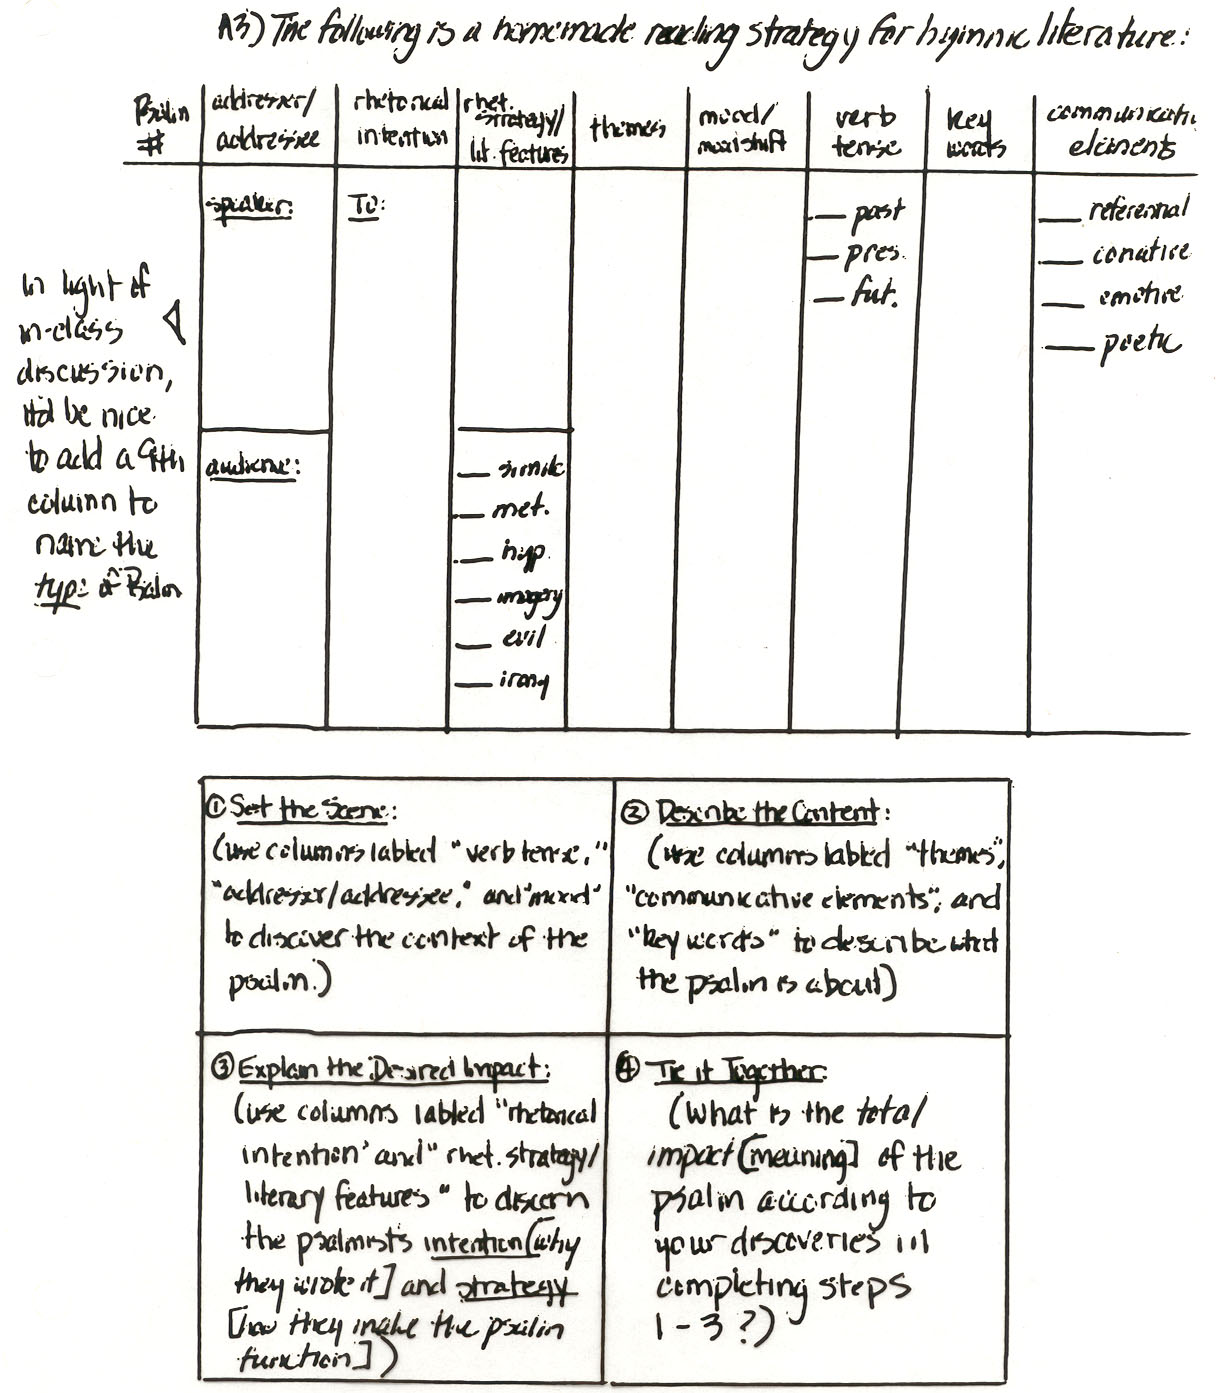 A3) The following is a homemade reading strategy for hymnic literature:
Psalm #
addresser/ addressee
rhetorical intention
rhet. strategy/ lit. features
themes
mood/ mood shift
verb tense
key words
communicative elements
speaker:
To:
— past
— pres.
— fut.
— referential
— conative
— emotive
— poetic
In light of
in-class
discussion,
it'd be nice
to add a 9th
column to
name the
type of Psalm
audience:
— simile
— met.
— hyp.
— imagery
— evil
— irony
① Set the Scene:
(use columns labled "verb tense,"
"addresser/addressee," and "mood"
to discover the context of the
psalm.)
② Describe the Content:
(use columns labled "themes",
"communicative elements", and
"key words" to describe what
the psalm is about)
③ Explain the Desired Impact:
(use columns labled "rhetorical
intention" and "rhet. strategy/
literary features" to discern
the psalmists intention [why
they wrote it] and strategy
[how they make the psalm
function])
④ Tie it Together:
(What is the total
impact [meaning] of the
psalm according to
your discoveries in
completing steps
1-3?)